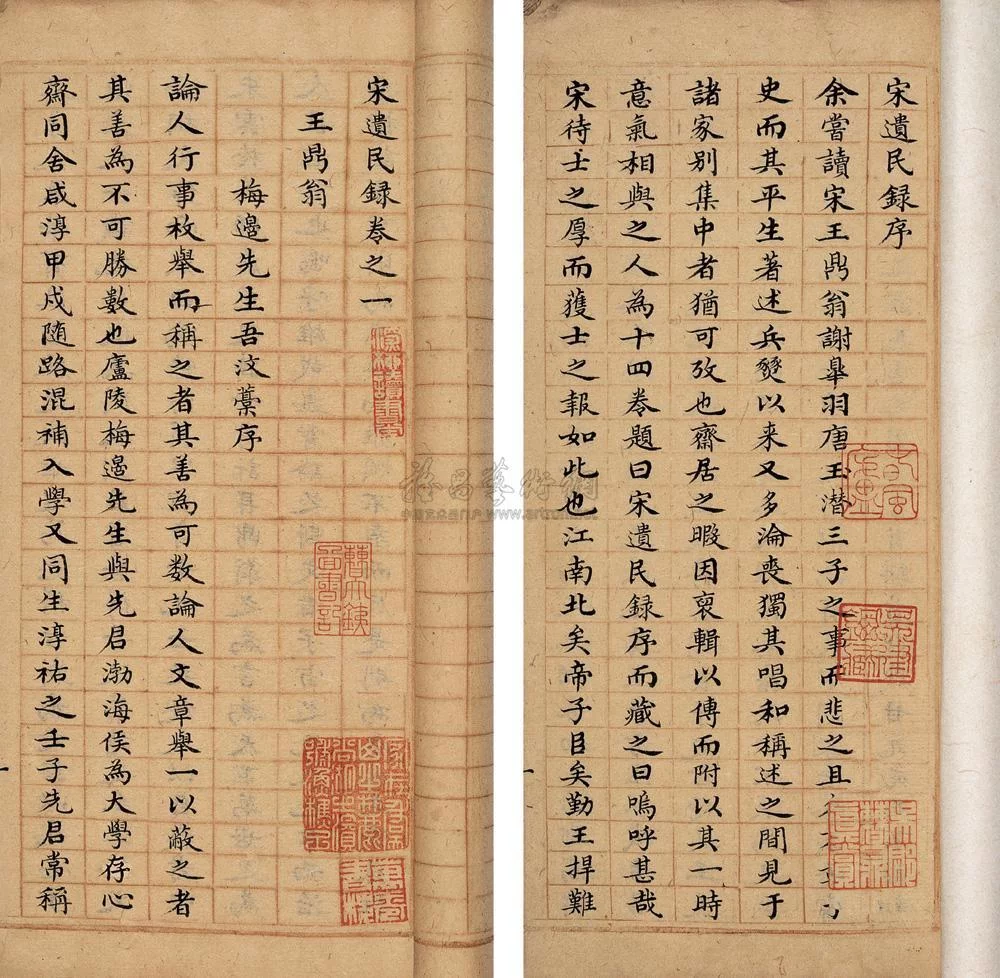 宋遺民録序
余嘗讀宋王鼎翁謝臯羽唐玉潜三子之事而悲之且
史而其平生著述兵燹以来又多淪喪獨其唱和稱述之間見于
諸家别集中者猶可攷也齋居之暇因裒輯以傳而附以其一時
意氣相與之人為十四卷題曰宋遺民録序而藏之曰嗚呼甚哉
宋待士之厚而獲士之報如此也江南北矣帝子臣矣勤王捍難
宋遺民録卷之一
王鼎翁
梅邉先生吾汶藁序
論人行事枚舉而稱之者其善為可数論人文章舉一以蔽之者
其善為不可勝數也廬陵梅邉先生與先君渤海侯為大學存心
齋同舍咸淳甲戌随路混補入學又同生淳祐之壬子先君常稱
www.artron.net